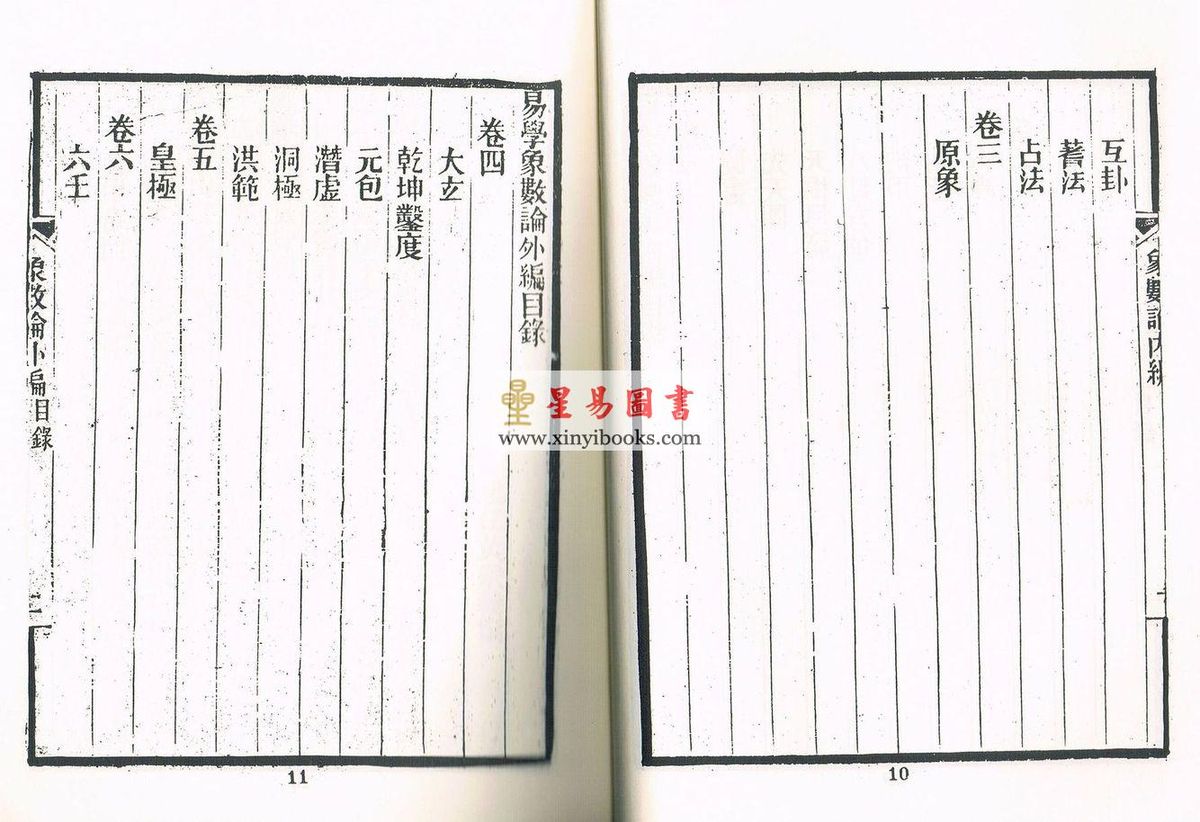 互卦
蓍法
占法
卷三
原象
象數論內編
10
易學象數論外編目錄
卷四
大玄
乾坤鑿度
元包
潛虛
洞極
洪範
卷五
皇極
卷六
六壬
象數論外編目錄
11
星易圖書
www.xinyibooks.com